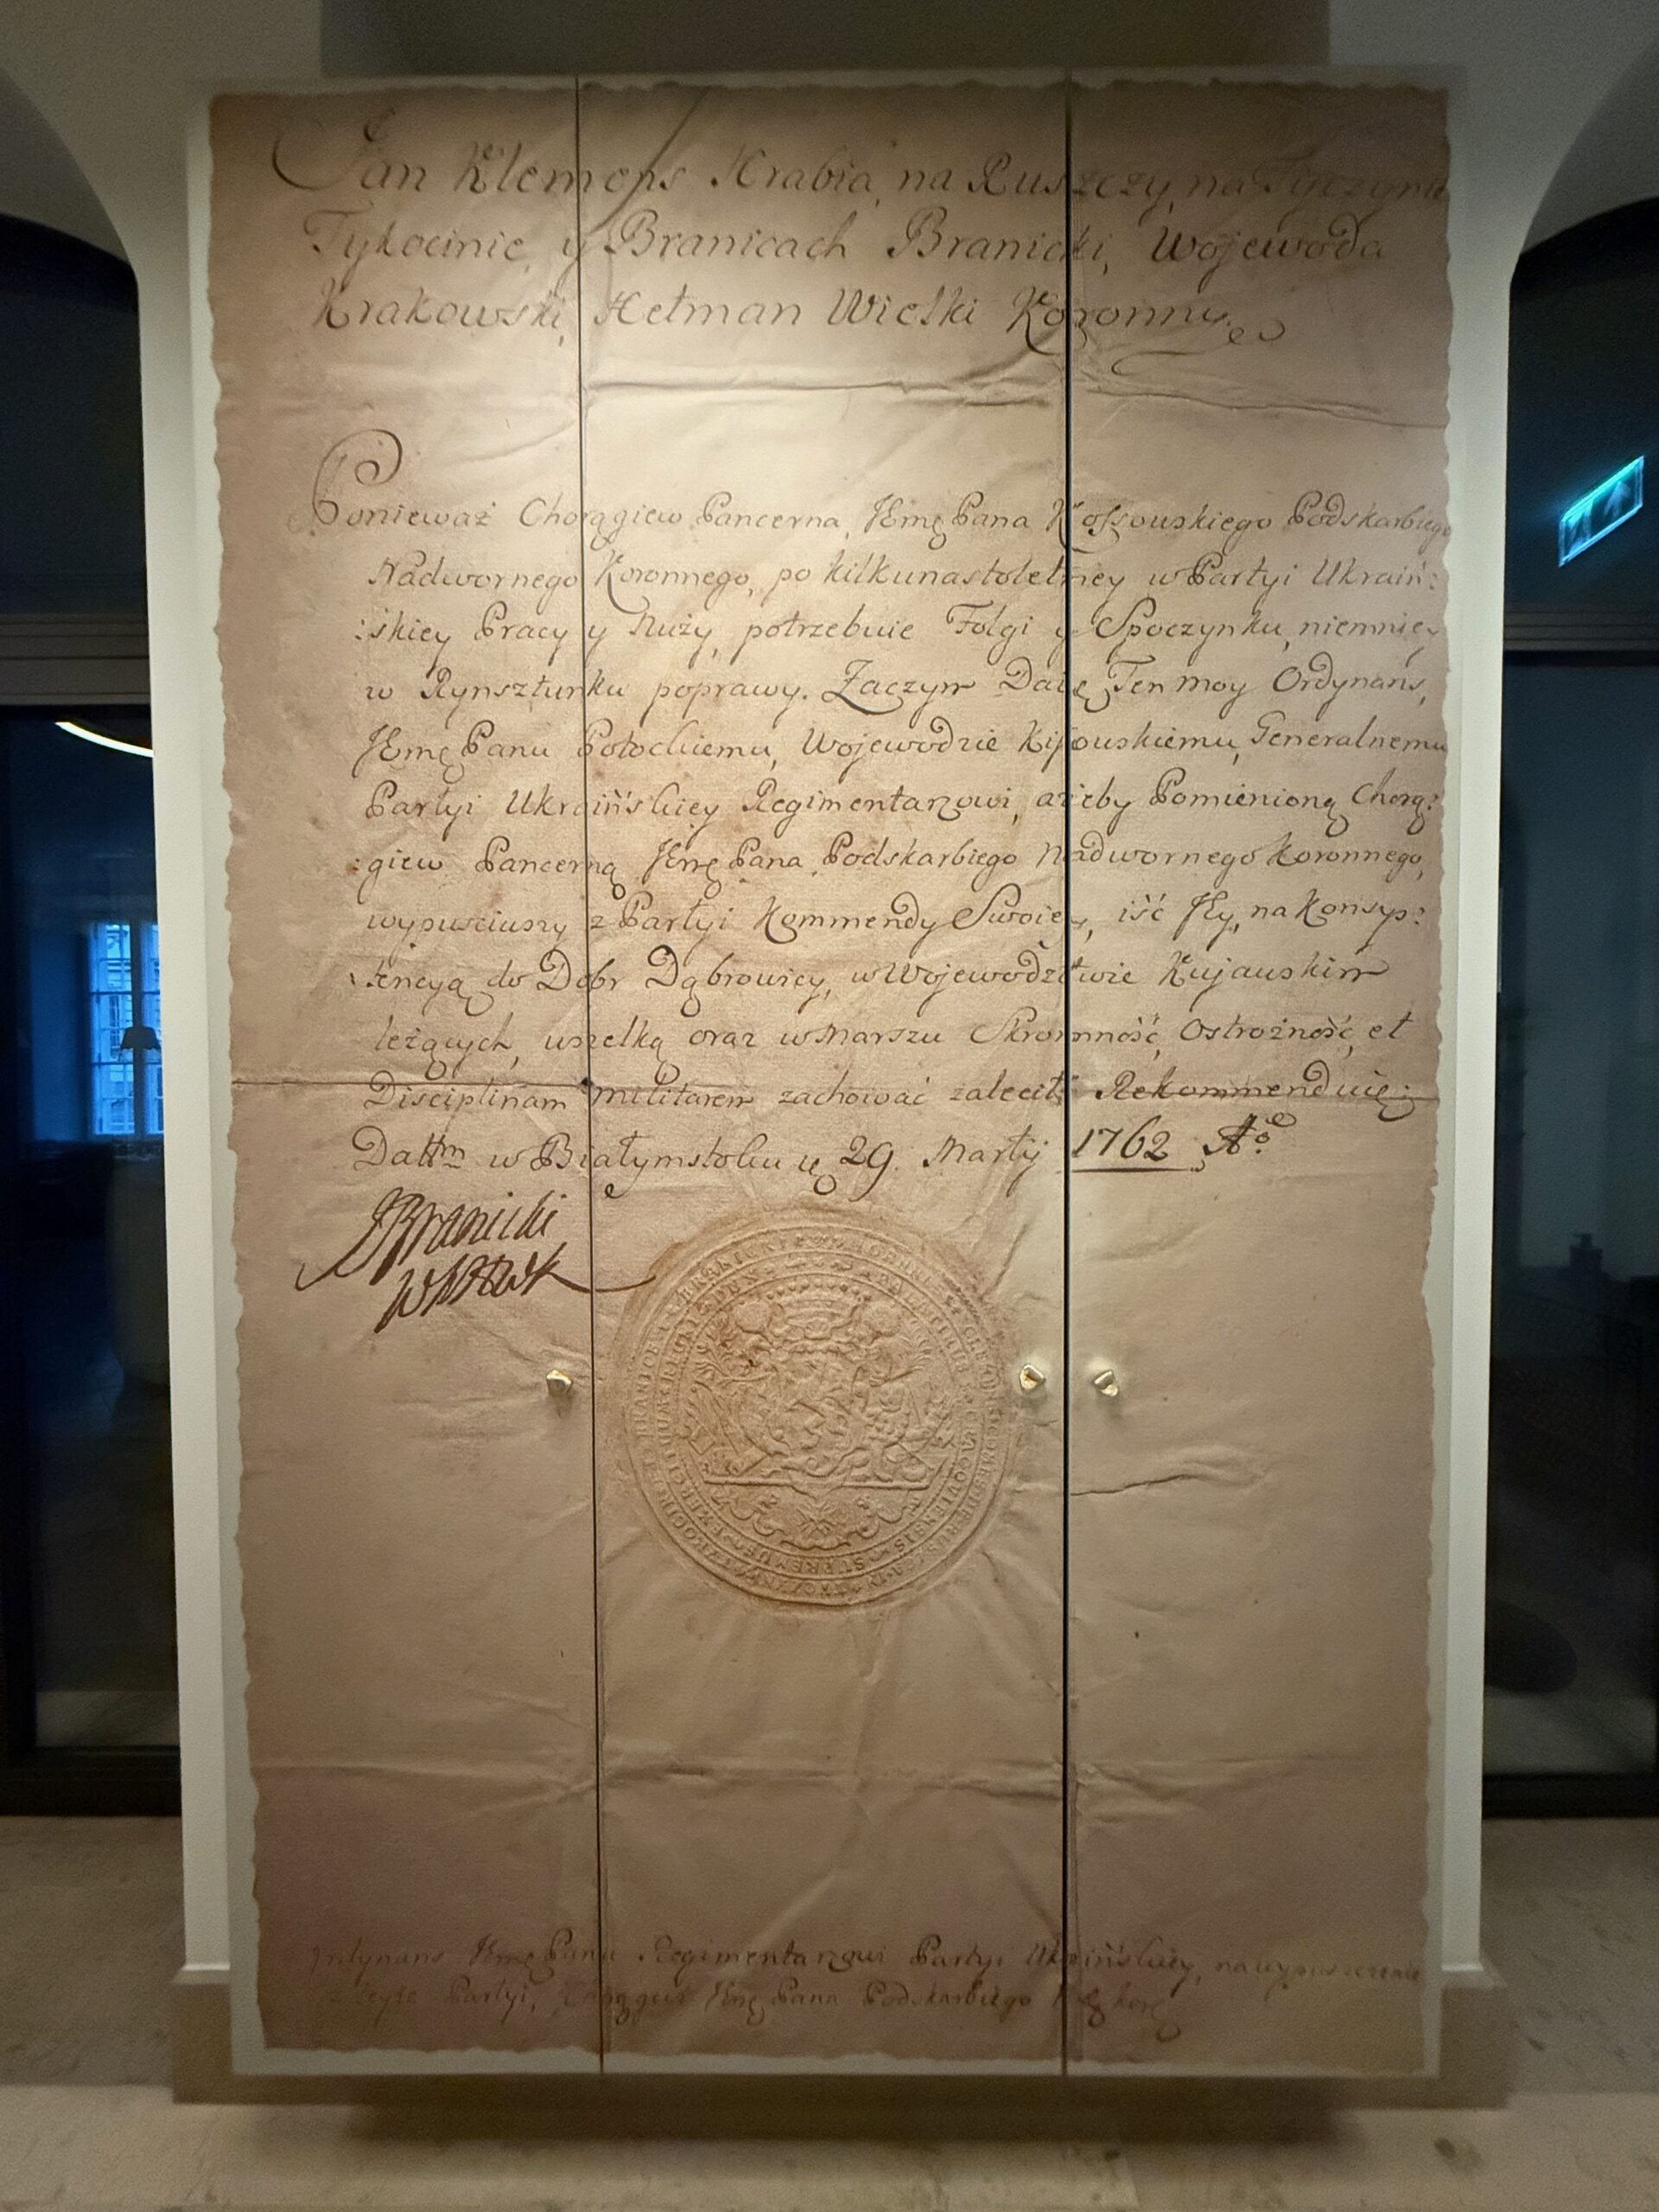 Jan Klemens Hrabia, na Ruszczy, na Tyczynie
Tykocinie, y Branicach Branicki, Wojewoda
Krakowski, Hetman Wielki Koronny.
Ponieważ Chorągiew Pancerna, JEmę Pana Kossowskiego Podskarbiego
Nadwornego Koronnego, po kilkunastoletniey w Partyi Ukraiń:
:skiey Pracy y Nuży, potrzebuie Folgi y Spoczynku, niemniey
w Rynsztunku poprawy. Zaczym Daię Ten moy Ordynans,
JEmę Panu Potockiemu, Wojewodzie Kijowskiemu, Generalnemu
Partyi Ukraińskiey Regimentarzowi, ażeby Pomienioną Chorą:
:giew Pancerną JEmę Pana Podskarbiego Nadwornego Koronnego,
wypuściwszy z Partyi Kommendy Swoiey, iść Jey, na Konsys:
:tencyą do Dobr Dąbrowicy, w Wojewodztwie Kujawskim
leżących, wszelką oraz w Marszu Skromność, Ostrożność, et
Disciplinam militarem zachować zalecił: Rekommenduię:
Dattm w Białymstoku 29. Martij 1762 Ao
JBranicki
Ordynans JEmę Panu Regimentarzowi Partyi Ukraińskiey, na wypuszczenie
z teyże Partyi, Chorągwi JEmę Pana Podskarbiego